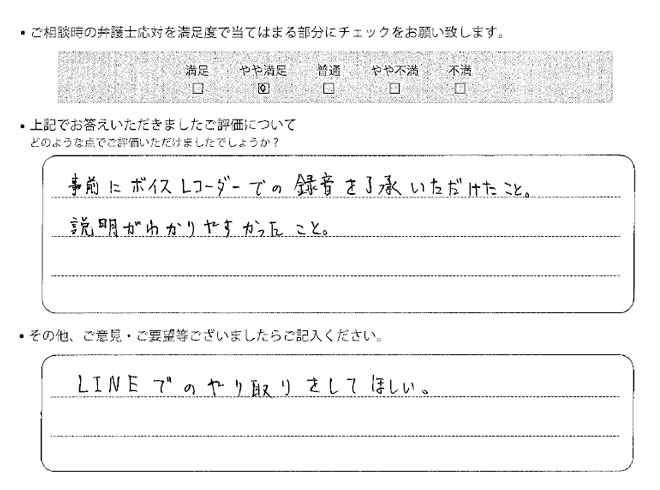 • ご相談時の弁護士応対を満足度で当てはまる部分にチェックをお願い致します。
満足 やや満足 普通 やや不満 不満
• 上記でお答えいただきましたご評価について
どのような点でご評価いただけましたでしょうか？
事前にボイスレコーダーでの録音を了承いただけたこと。
説明がわかりやすかったこと。
• その他、ご意見・ご要望等ございましたらご記入ください。
LINEでのやり取りをしてほしい。